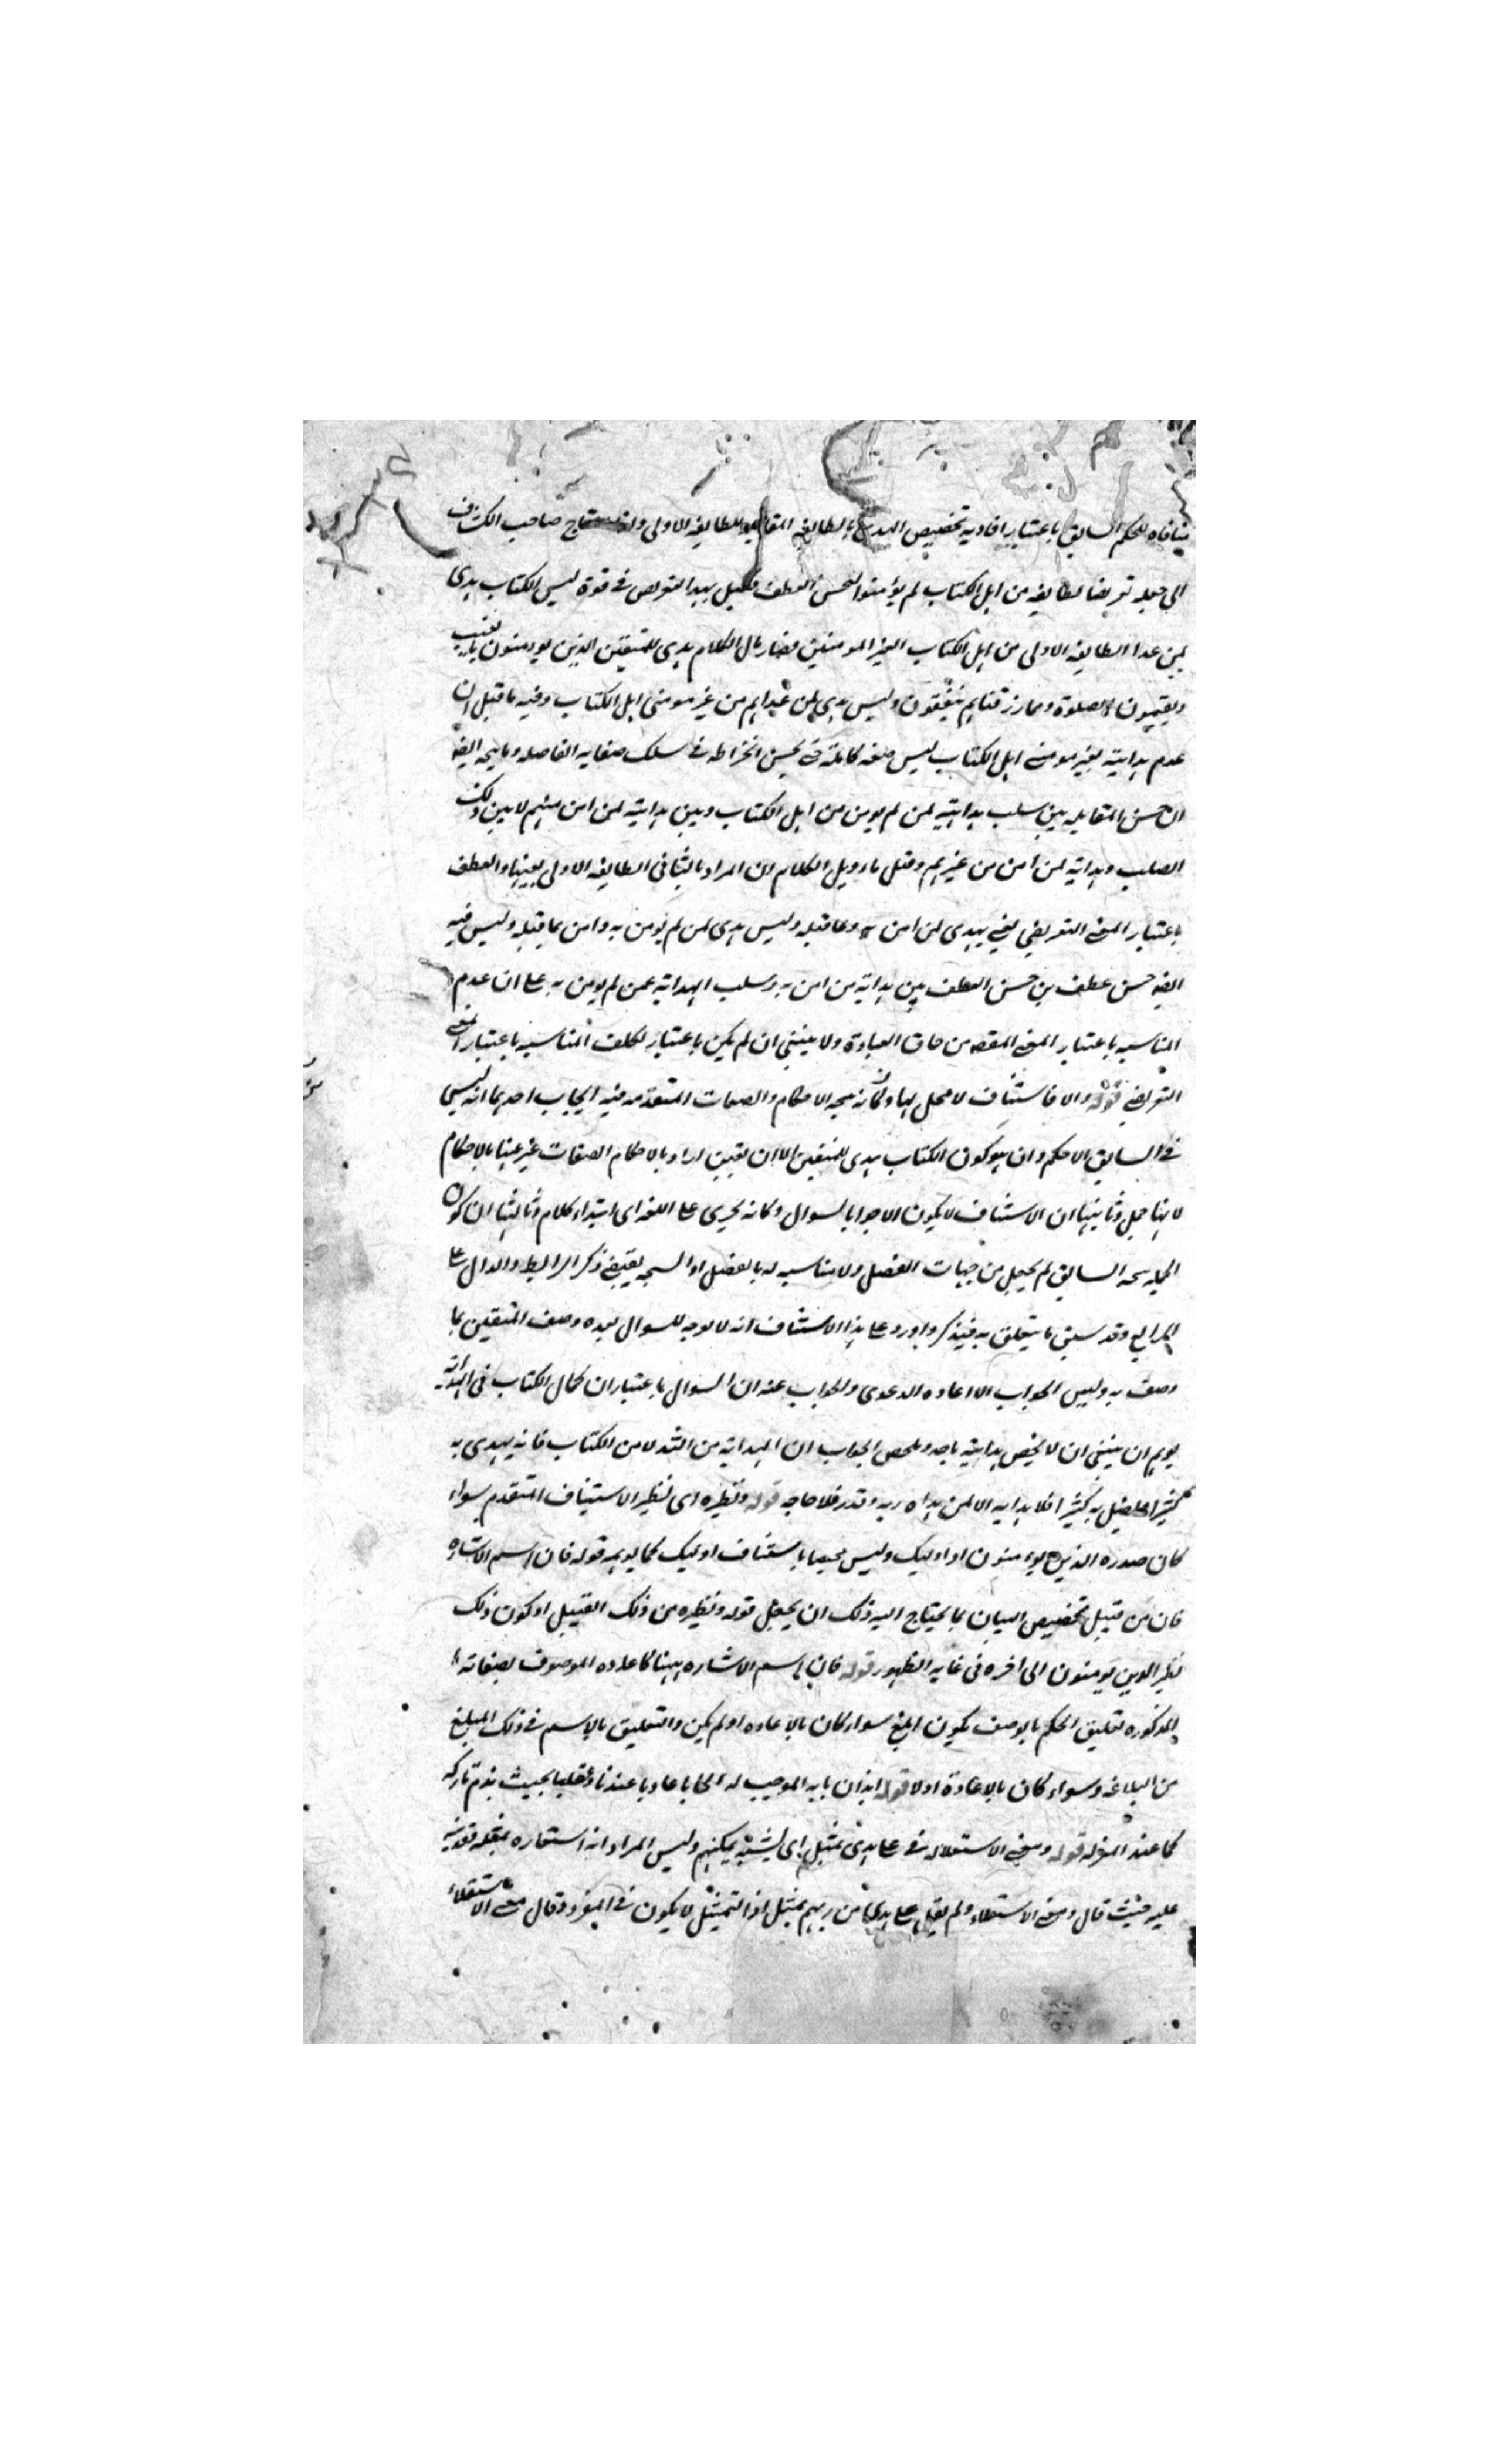 ينافاه للحكم السابق باعتبار افادته تخصيص الهدى بالطايفه المقابله للطايفه الاولى ولذا احتاج صاحب الكشاف
الى جعله تعريضا لطايفه من اهل الكتاب لم يؤمنوا ليحسن العطف فقيل بهذا التعريض في قوة ليس الكتاب هدى
لمن عدا الطايفه الاولى من اهل الكتاب الغير المومنين فصار مال الكلام هدى للمتقين الذين يومنون بالغيب
ويقيمون الصلوة ومما رزقناهم ينفقون وليس هدى لمن عداهم من غير مومنى اهل الكتاب وفيه ما قيل ان
عدم هدايته لغير مومنى اهل الكتاب ليس صفه كامله حتى يحسن انخراطه في سلك صفاته الفاضله ويتجه ايضا
ان حسن المقابله بين سلب هدايته لمن لم يومن من اهل الكتاب وبين هدايته لمن امن منهم لا بين ذلك
السلب وهدايته لمن امن من غيرهم وقيل تاويل الكلام ان المراد بالثاني الطايفه الاولى بعينها والعطف
باعتبار المعنى التعريضي يعني يهدى لمن امن به وبما قبله وليس هدى لمن لم يومن به وامن بما قبله وليس فيه
ايضا حسن عطف بل حسن العطف بين هداية من امن به وسلب الهداية عمن لم يومن به على ان عدم
المناسبه باعتبار المعنى المقصد من حاق العبادة ولا ينبغي ان لم يكن باعتبار لكلف المناسبه باعتبار المعنى
التعريضي قوله والا فاستيناف لا محل لها وكانه نتيجه الاحكام والصفات المتقدمه فيه ايجاب احدهما انه ليس
في السابق الا حكم وان هو كون الكتاب هدى للمتقين الا ان يقين اراد بالاحكام الصفات غير عنها بالاحكام
لانها جمل وثانيها ان الاستيناف لا يكون الا جوابا لسوال وكانه يجرى على اللغه اى ابتداء كلام وثالثها ان كون
الجمله نتيجه السابق لم يجعل من جهات الفصل ولا مناسبه له بالفصل اذ النتيجه يقتضي ذكر الرابط والدال على
الرابع وقد سبق ما يتعلق به فتذكر واورد على هذا الاستيناف انه لا توجه للسوال بعده وصف المتقين بما
وصف به وليس الجواب الا اعاده الدعوى والجواب عنه ان السوال باعتبار ان كمال الكتاب في الهداية
يوهم ان ينبغي ان لا يخص هدايته باحد وملخص الجواب ان الهداية من الله لا من الكتاب فانه يهدى به
كثيرا ويضل به كثيرا فلا هدايه الا لمن هداه ربه وقدر فلا حاجه قوله ونظيره اى نظير الاستيناف المتقدم سواء
كان صدره الذين يومنون او اوليك وليس مخصا باستيناف اوليك كما يوهمه قوله فان اسم الاشاره
فان من قبيل تخصيص البيان بما يحتاج اليه ذلك ان يجعل قوله ونظيره من ذلك القبيل او كون ذلك
نظير الذين يومنون الى اخره في غايه الظهور قوله فان اسم الاشاره ههنا كاعاده الموصوف بصفاته
المذكوره تعليق الحكم بالوصف يكون ابلغ سواء كان بالاعاده او لم يكن والتعليق بالاسم في ذلك المبلغ
من البلاغه وسواء كان بالاعادة او لا قوله ايذان بانه الموجب له ايجابا عاديا عندنا وعقليا بحيث يذم تاركه
كما عند المعتزله قوله ومعنى الاستعلاء في على هدى تمثيل اى لتشبيه تمكنهم وليس المراد انه استعاره بمعقله قوينه
عليه حيث قال ومعنى الاستعلاء ولم يقل على هدى من ربهم تمثيل اذ التمثيل لا يكون في المفرد وقال معنى الاستعلاء